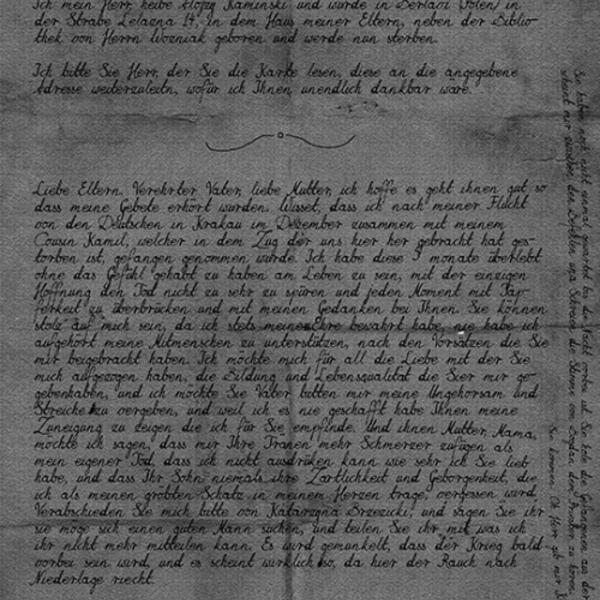 Ich mein Herr, heiße Alojzy Kaminski und wurde in Polen in
der Straße Lelazna 14. In dem Haus meiner Eltern, neben der Biblio-
thek von Herrn Wozniak geboren und werde nun sterben.
Ich bitte Sie Herr, der Sie die Karte lesen, diese an die angegebene
Adresse weiterzuleitn, wofür ich Ihnen unendlich dankbar wäre.
Liebe Eltern. Verehrter Vater, liebe Mutter, ich hoffe es geht ihnen gut so
dass meine Gebete erhört wurden. Wisset, dass ich nach meiner Flucht
von den Deutschen in Krakau im Dezember zusammen mit meinem
Cousin Kamil, welcher in dem Zug der uns hier her gebracht hat ges-
torben ist, gefangen genommen wurde. Ich habe diese 3 monate überlebt
ohne das Gefühl gehabt zu haben am Leben zu sein, mit der einzigen
Hoffnung den Tod nicht zu sehr zu spüren und jeden Moment mit Tap-
ferkeit zu überbrücken und mit meinen Gedanken bei Ihnen. Sie können
stolz auf mich sein, da ich stets meine Ehre bewahrt habe, nie habe ich
aufgehört meine Mitmenschen zu unterstützen, nach den Vorsätzen die Sie
mir beigebracht haben. Ich möchte mich für all die Liebe mit der Sie
mich aufgezogen haben, die Bildung und Lebensqualität die Sier mir ge-
gebenhaben, und ich möchte Sie Vater bitten mir meine Ungehorsam und
Streiche zu vergeben, und weil ich es nie geschafft habe Ihnen meine
Zuneigung zu zeigen die ich für Sie empfinde. Und ihnen Mutter, Mama,
möchte ich sagen, dass mir Ihre Tränen mehr Schmerzer zufügen als
mein eigener Tod, dass ich nicht ausdrüken kann wie sehr ich Sie lieb
habe, und dass Ihr Sohn niemals ihre Zärtlichkeit und Geborgenheit, die
ich als meinen größten Schatz in meinem Herzen trage, vergessen wird.
Verabschieden Sie mich bitte von Katarzyna Brzezicki, und sagen Sie ihr
sie möge sich einen guten Mann suchen, und teilen Sie ihr mit was ich
ihr nicht mehr mitteilen kann. Es wird gemunkelt, dass der Krieg bald
vorbei sein wird, und es scheint wirklich so, da hier der Rauch nach
Niederlage riecht.
Sie haben noch nicht einmal gewartet bis die Nacht vorbei ist. Sie hole die Gefangenen aus der
scheint mir zwischen den Befehlen und Schreien die Stimme von Bogdan dem Priester zu hören.
Sie kommen. Oh Herr gib mir